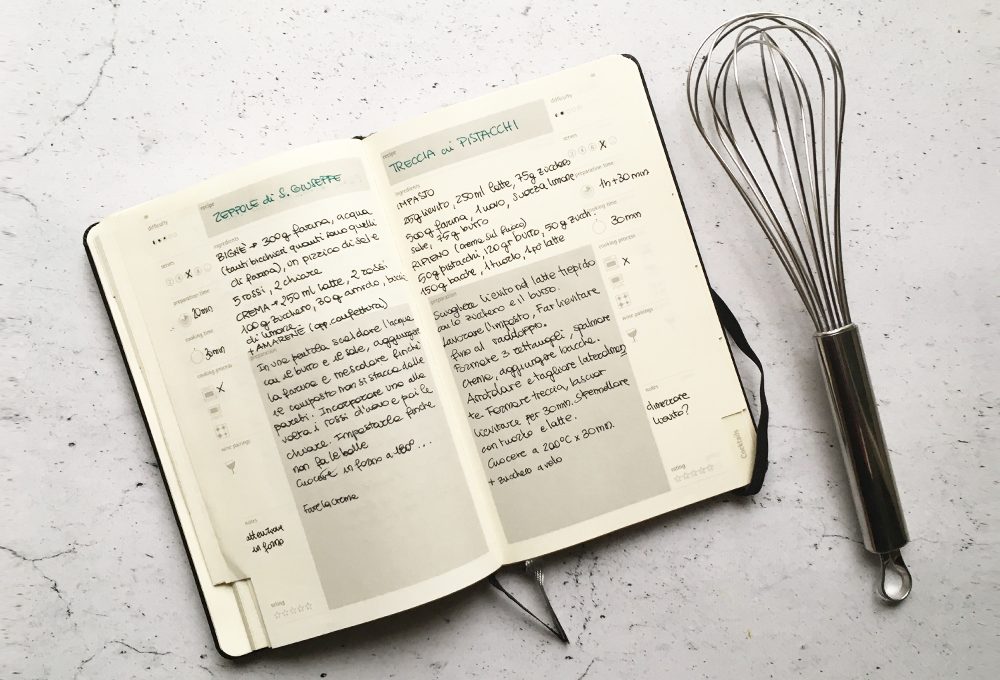 difficulty
recipe
ZEPPOLE di S. GIUSEPPE
serves
2 4 6 X
preparation time
20min
cooking time
30min
cooking process
X
wine pairings
notes
attenzione
in forno
rating
ingredients
BIGNÈ → 300g farina, acqua
(tanti bicchieri quanti sono quelli
di farina), un pizzico di sale
5 rossi, 2 chiare
CREMA → 250 ml latte, 2 rossi
100g zucchero, 30g amido, bucc
di limone
+ AMARENE (opp. confettura)
preparation
In una pentola scaldare l'acqua
con il burro e il sale, aggiungere
la farina e mescolare finché
il composto non si stacca dalle
pareti. Incorporare uno alla
volta i rossi d'uovo e poi le
chiare. Impastarla finché
non fa le bolle
Cuocere in forno a 180° ...
Fare la crema
recipe
TRECCIA ai PISTACCHI
difficulty
serves
2 4 6 X
preparation time
1h+30min
cooking time
30min
cooking process
X
wine pairings
notes
dimezzare
lievito?
rating
Cocktails
ingredients
IMPASTO
25g lievito, 250ml latte, 75g zucchero
500g farina, 1 uovo, scorza limone
sale, 75g burro
RIPIENO (crema sul fuoco)
50g pistacchi, 120gr burro, 50g zucch.
150g bacche, 1 tuorlo, 1 po' latte
preparation
Sciogliere lievito nel latte tiepido
con lo zucchero e il burro.
Lavorare l'impasto. Far lievitare
fino al raddoppio.
Formare 3 rettangoli, spalmare
crema, aggiungere bacche.
Arrotolare e tagliare lateralmen
te. Formare treccia, lasciar
lievitare per 30min. Spennellare
con tuorlo e latte.
Cuocere a 200°C x 30min.
+ zucchero a velo